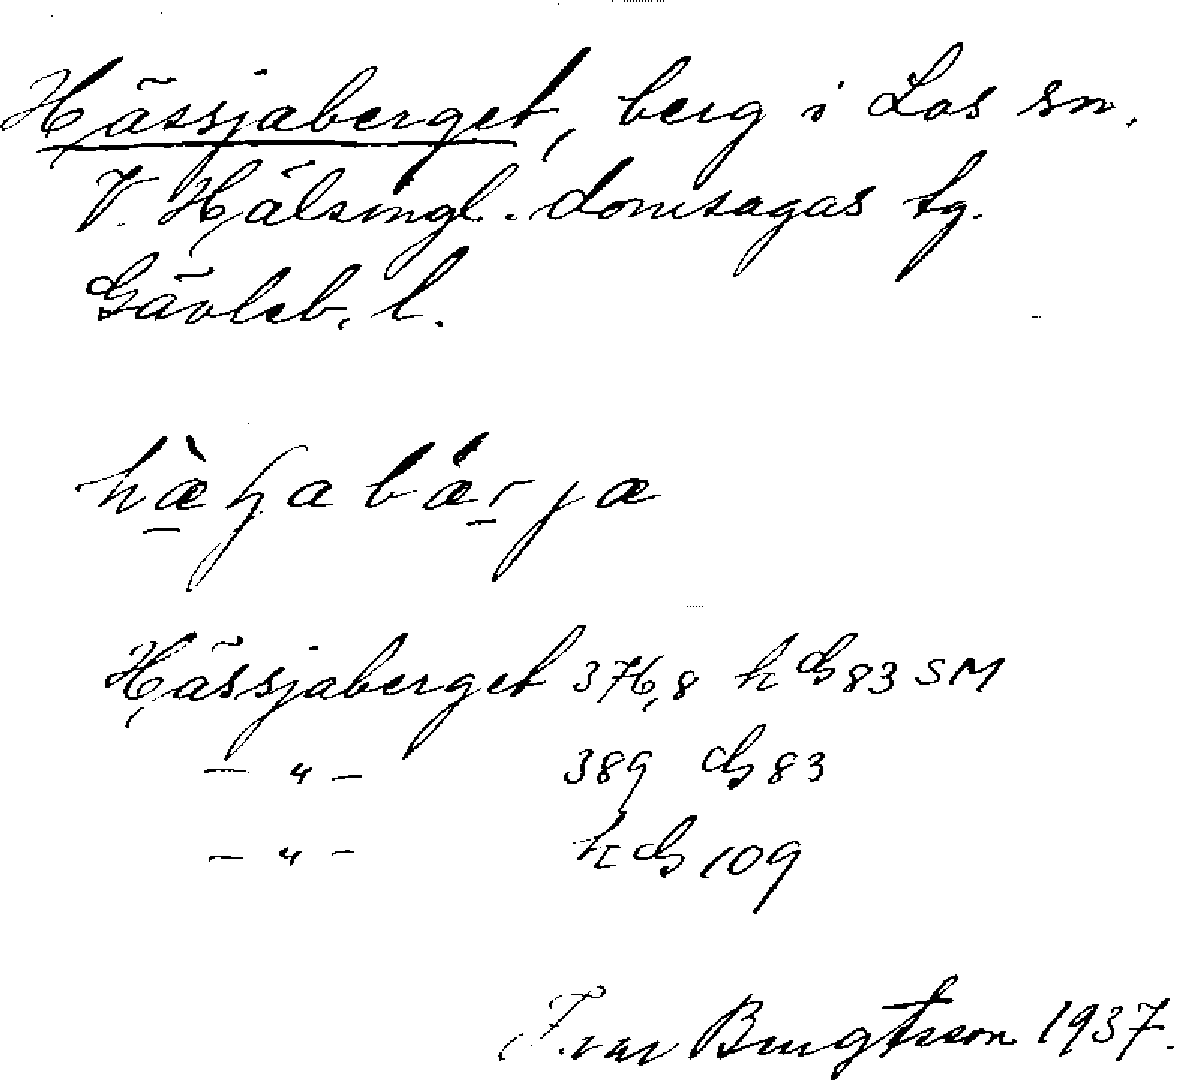 Hässjaberget, berg i Los sn.
V. Hälsingl. domsagas tg.
Gävleb. l.
Hässjaberget 376,8 h G 83 SM
— " — 389 G 83
— " — h G 109
Ivar Bengtsson 1937.